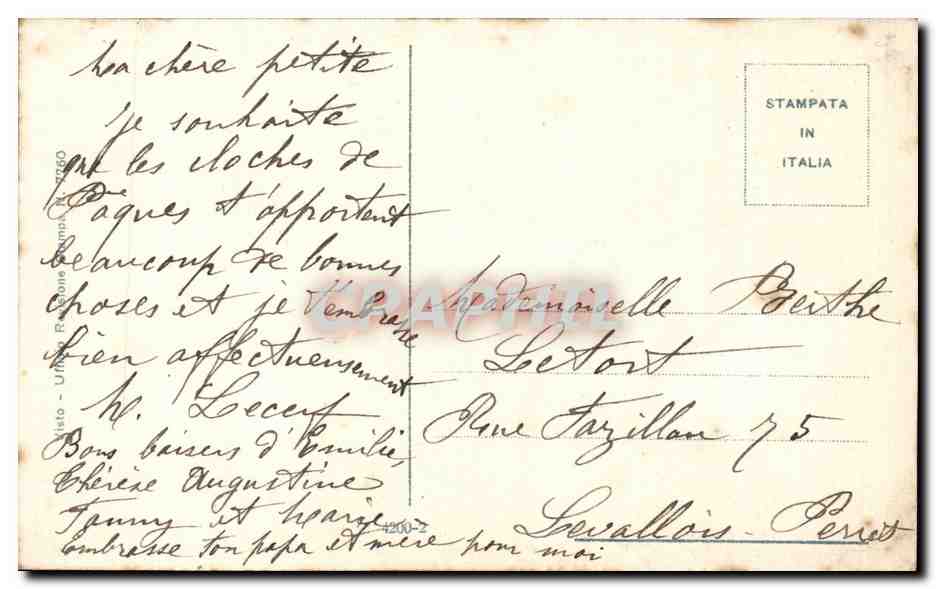 Ma chère petite
je souhaite
que les cloches de
Pâques t'apportent
beaucoup de bonnes
choses et je t'embrasse
bien affectueusement
M. Lecerf
Bons baisers d'Emilie,
Thérèse Augustine
Fanny et Marie
Embrasse ton papa et mère pour moi
Visto - Ufficio Revisione Stampa N. 7260
4200-2
STAMPATA
IN
ITALIA
Mademoiselle Berthe
Letort
Rue Fazillau 75
Levallois-Perret
CPAPHIL